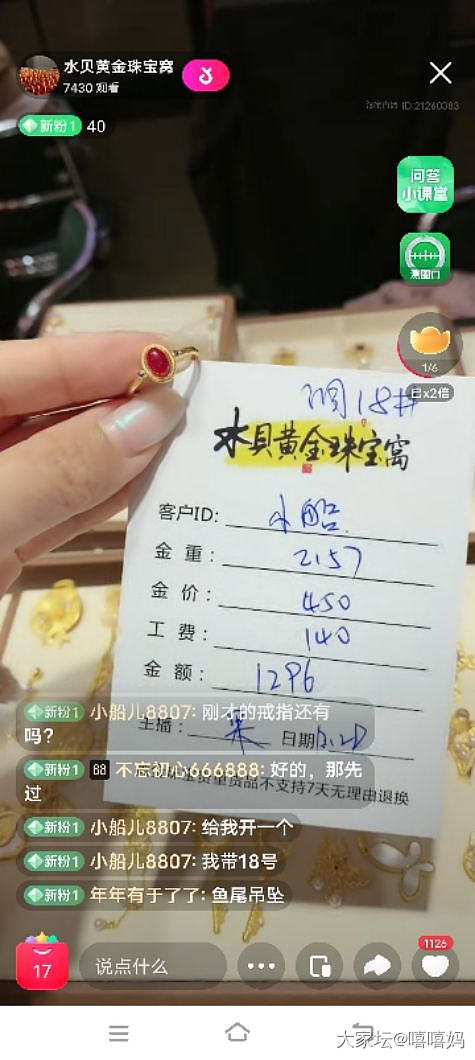 水贝黄金珠宝窝
7430观看
ID:21260383
新粉1 40
问答
小课堂
测圈口
1/6
已x2倍
18#
水贝黄金珠宝窝
客户ID: 小船
金重: 2.157
金价: 450
工费: 140
金额: 1296
主播: 日期
货品不支持7天无理由退换
新粉1 小船儿8807: 刚才的戒指还有
吗?
新粉1 88 不忘初心666888: 好的，那先
过
新粉1 小船儿8807: 给我开一个
新粉1 小船儿8807: 我带18号
新粉1 年年有于了了: 鱼尾吊坠
17
说点什么
1126
大家坛@嘻嘻妈